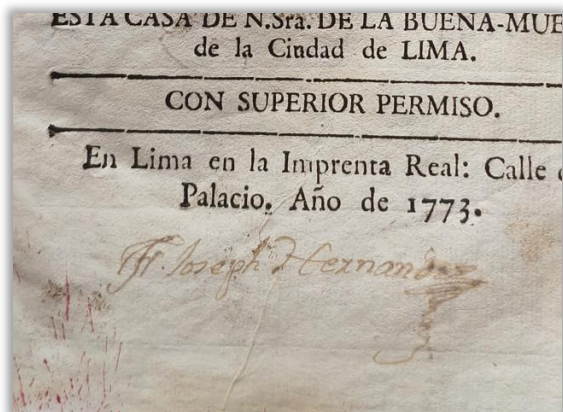 ESTA CASA DE N.Sra. DE LA BUENA-MUE
de la Ciudad de LIMA.
CON SUPERIOR PERMISO.
En Lima en la Imprenta Real: Calle
Palacio. Año de 1773.
Fr. Joseph Hernandez